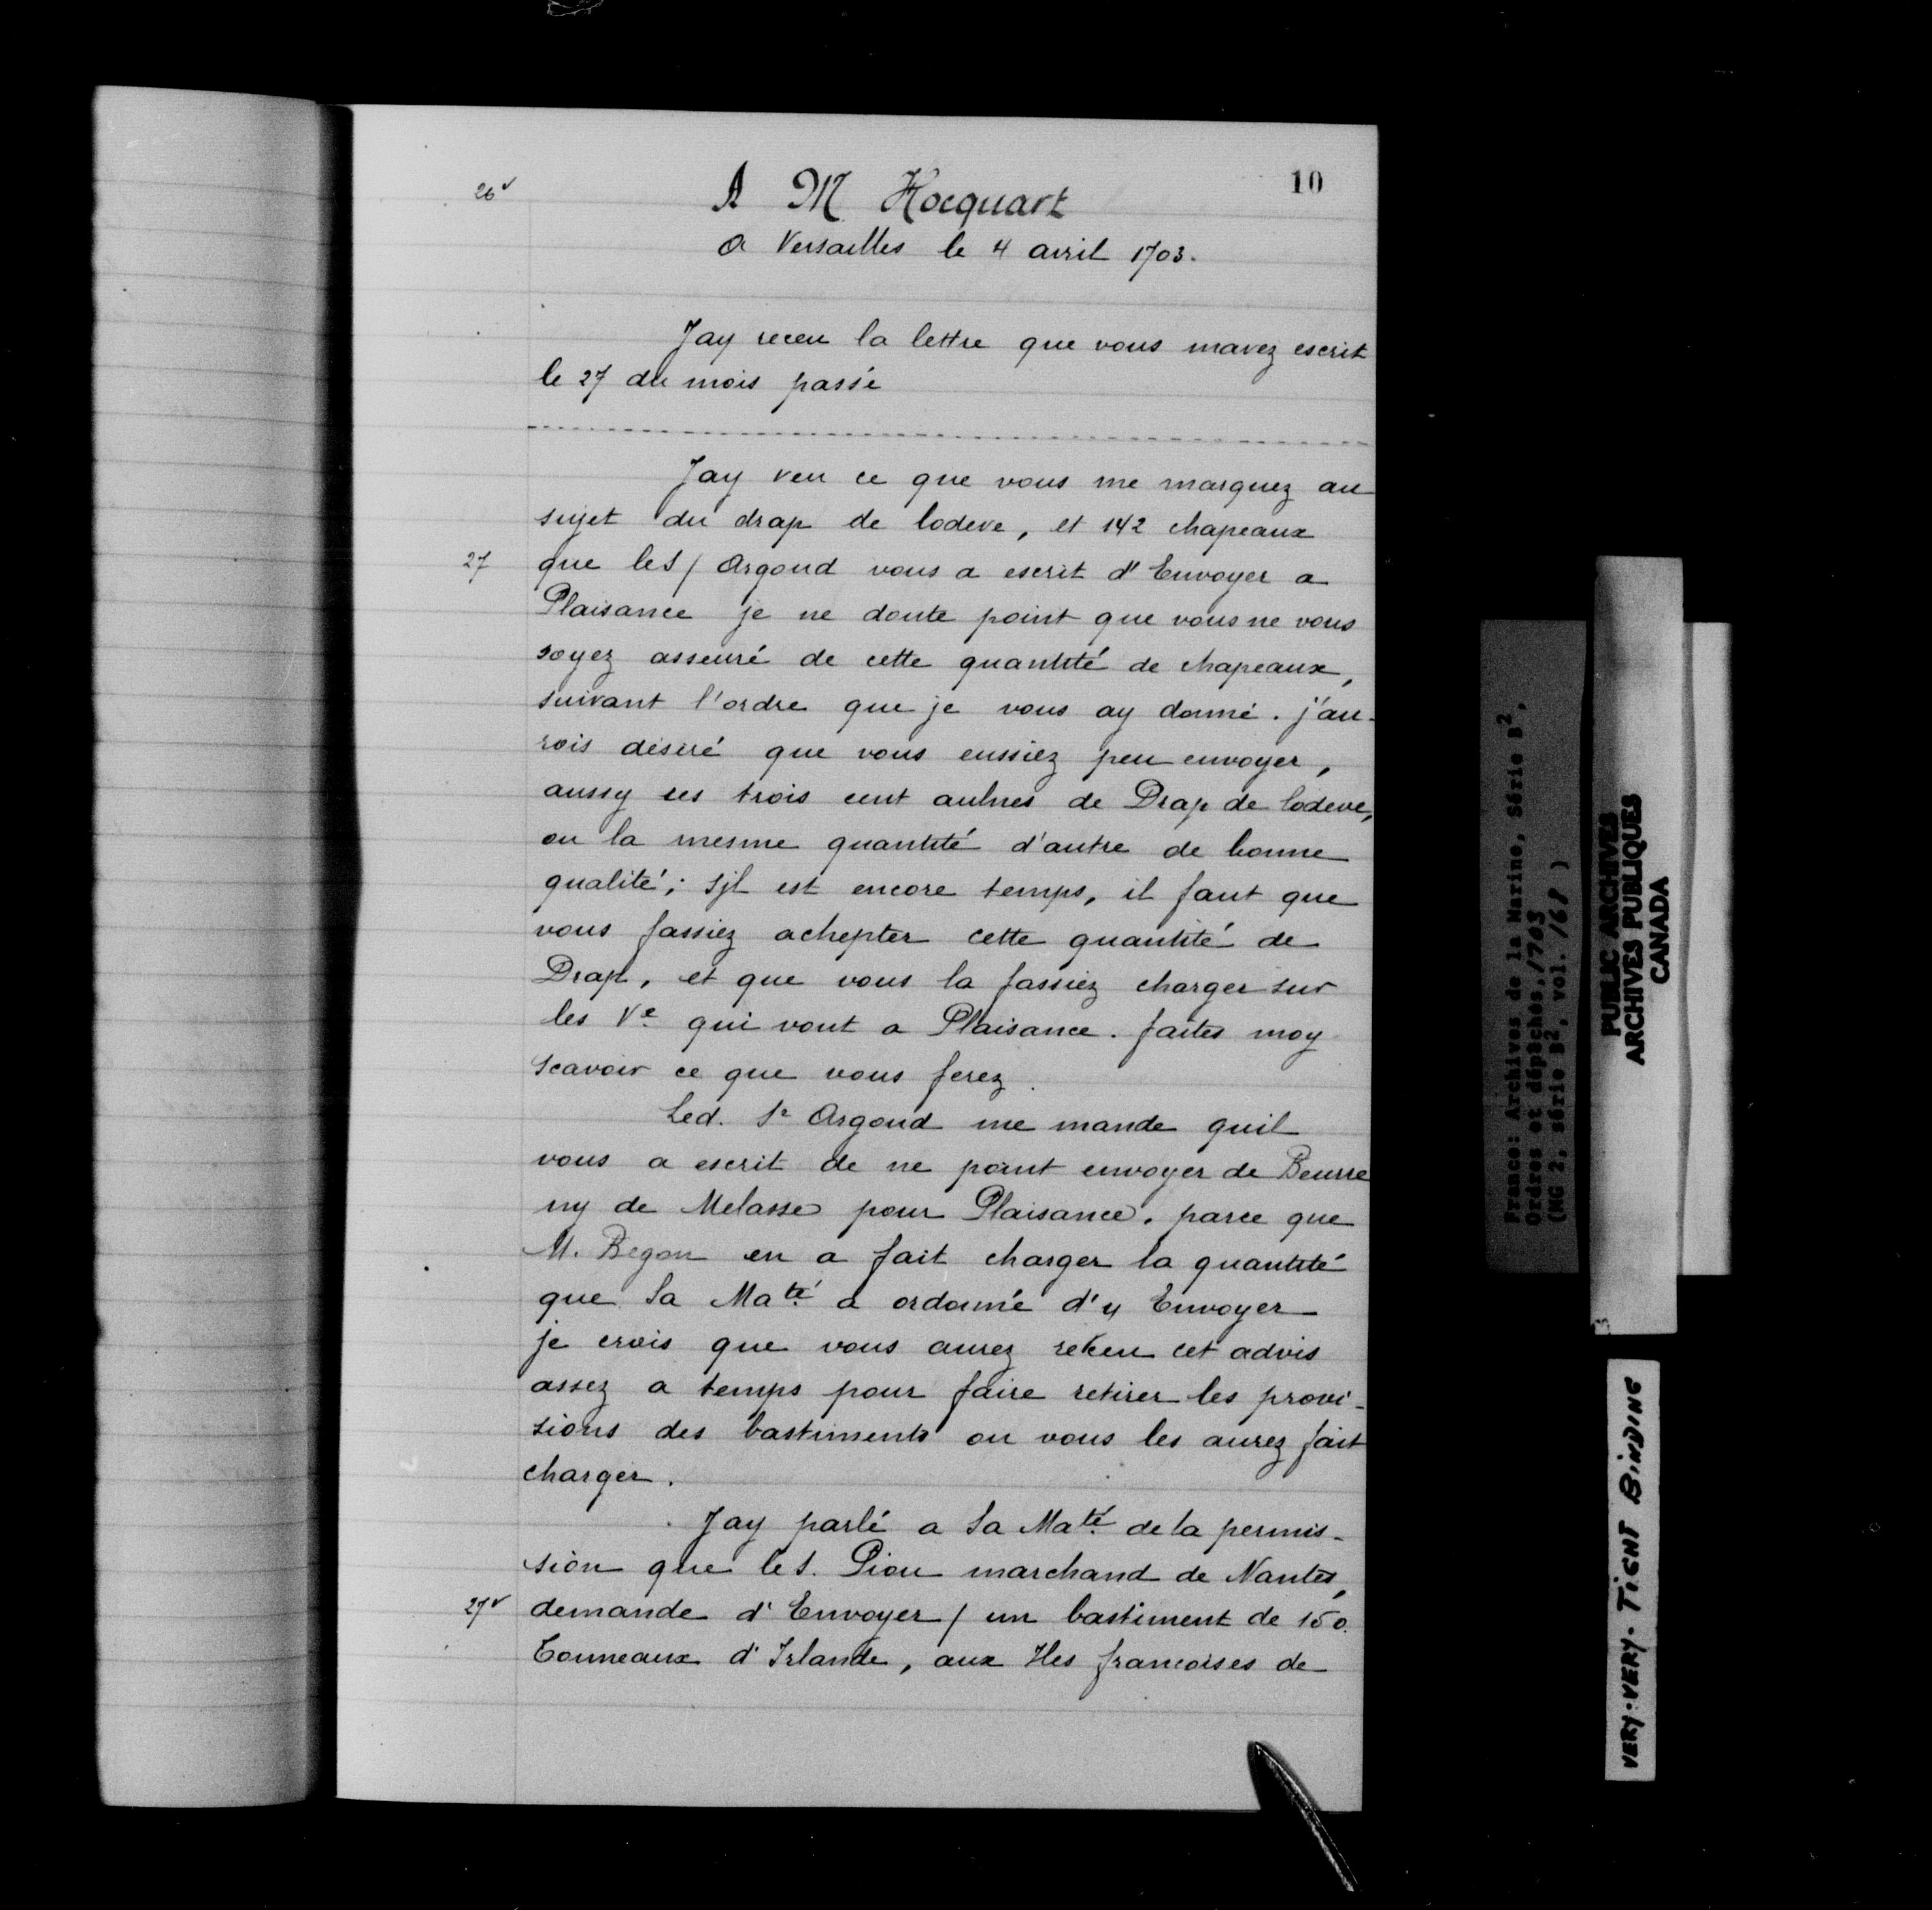 10
26v
A M Hocquart
a Versailles le 4 avril 1703.
Jay receu la lettre que vous mavez escrit
le 27 du mois passé
Jay veu ce que vous me marquez au
sujet du drap de lodeve, et 142 chapeaux
27
que le S / Argoud vous a escrit d'Envoyer a
Plaisance je ne doute point que vous ne vous
soyez asseuré de cette quantité de chapeaux,
suivant l'ordre que je vous ay donné. j'au-
rois désiré que vous eussiez peu envoyer,
aussy ces trois cent aulnes de Drap de lodeve,
ou la mesme quantité d'autre de bonne
qualité; sjl est encore temps, il faut que
vous fassiez achepter cette quantité de
Drap, et que vous la fassiez charger sur
les Ve qui vont a Plaisance. faites moy
scavoir ce que vous ferez.
Led. Sr Argoud me mande quil
vous a escrit de ne point envoyer de Beurre
ny de Melasse pour Plaisance, parce que
M. Begon en a fait charger la quantité
que Sa Maté a ordonné d'y Envoyer
je crois que vous aurez receu cet advis
assez a temps pour faire retirer les provi-
sions des bastiments ou vous les aurez fait
charger.
Jay parlé a Sa Maté de la permis-
sion que le S. Piou marchand de Nantes,
27v
demande d'Envoyer / un bastiment de 150.
Tonneaux d'Irlande, aux Iles francoises de
France: Archives de la Marine, Série B2,
Ordres et dépêches, 1703
(MG 2, série B2, vol. 168 )
PUBLIC ARCHIVES
ARCHIVES PUBLIQUES
CANADA
3
VERY-VERY-TIGHT BINDING